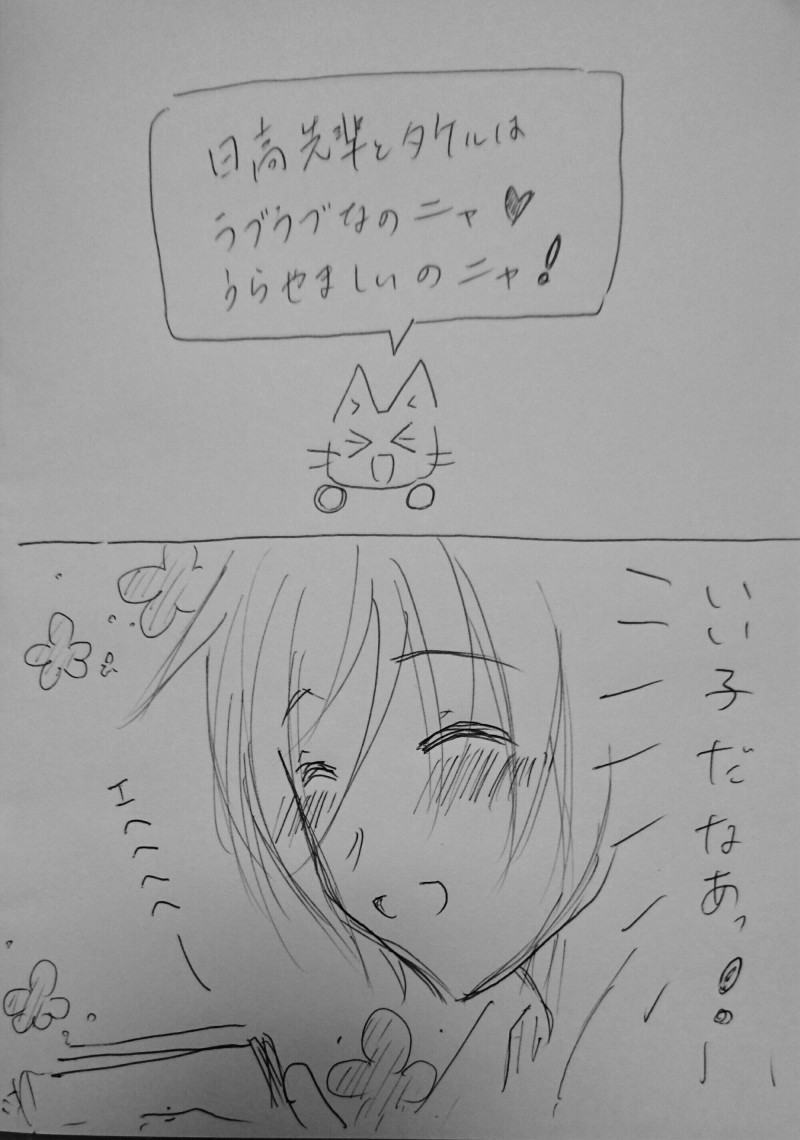 日高先輩とタケルは
うブうブなのニャ♥
うらやましいのニャ!
いい子だなあっ!!
エへへへへ